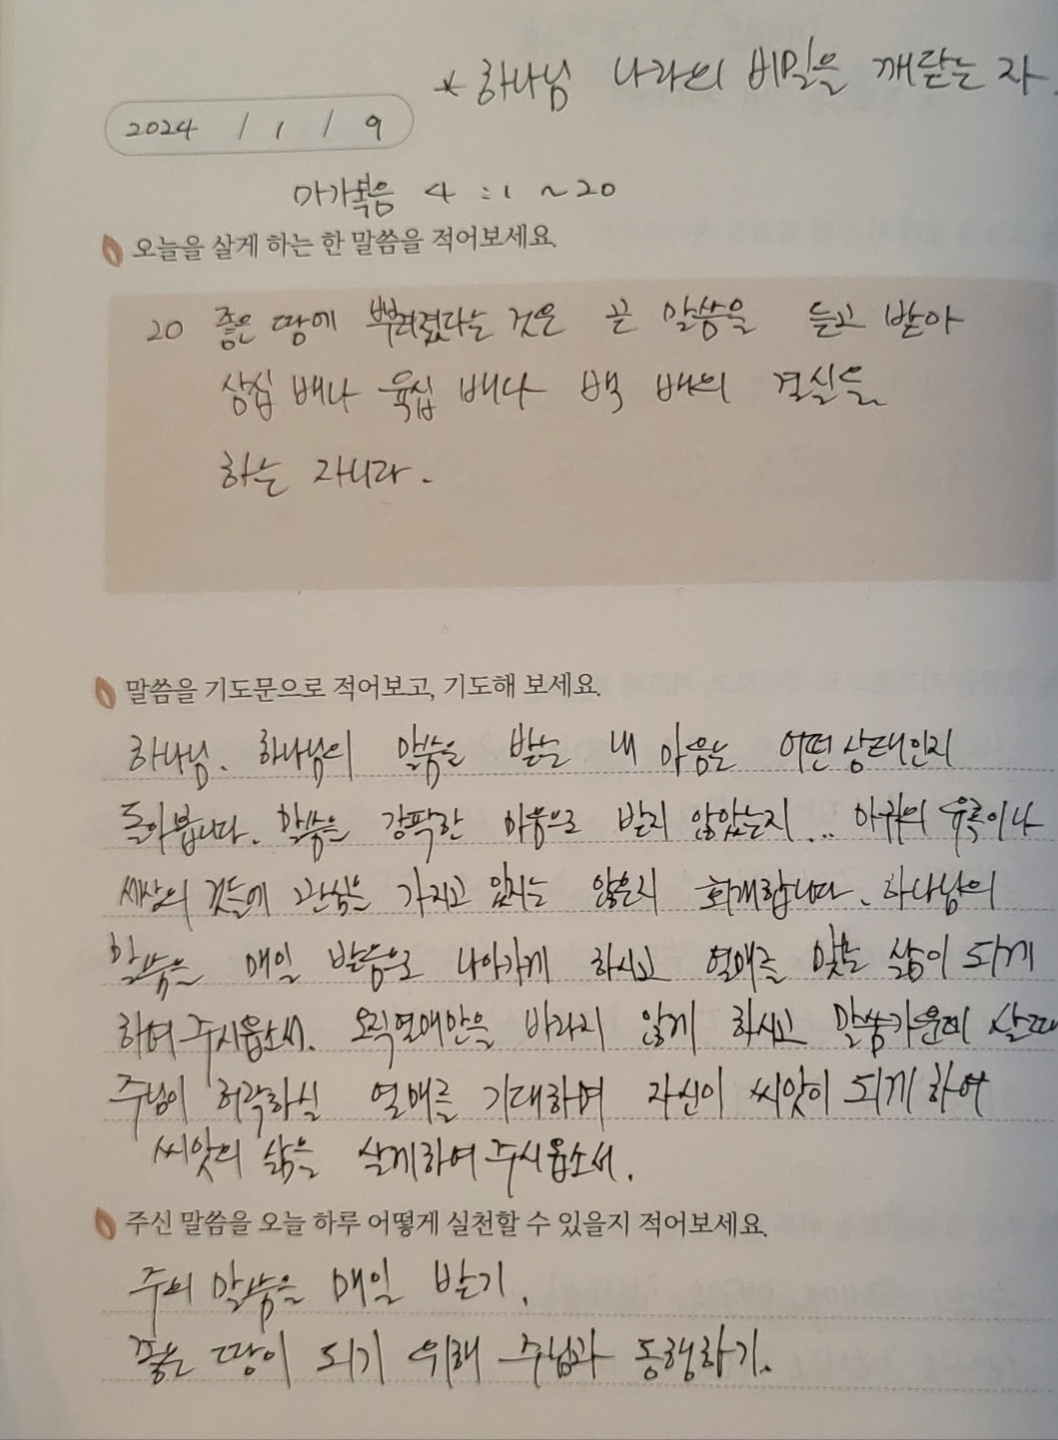 * 하나님 나라의 비밀을 깨닫는 자.
2024 / 1 / 9
마가복음 4 : 1 ~ 20
오늘을 살게 하는 한 말씀을 적어보세요.
20 좋은 땅에 뿌려졌다는 것은 곧 말씀을 듣고 받아
삼십 배나 육십 배나 백 배의 결실을
하는 자니라.
말씀을 기도문으로 적어보고, 기도해 보세요.
하나님. 하나님의 말씀을 받는 내 마음는 어떤 상태인지
돌아봅니다. 말씀은 강팍한 마음으로 받지 않았는지... 마귀의 유혹이나
세상의 것들에 관심은 가지고 있지는 않은지 회개합니다. 하나님의
말씀은 매일 받음으로 나아가게 하시고 열매를 맞는 삶이 되게
하여 주시옵소서. 오직 열매만을 바라지 않게 하시고 말씀가운데 살때
주님이 허락하실 열매를 기대하며 자신이 씨앗이 되게 하여
씨앗의 삶을 살게하여 주시옵소서.
주신 말씀을 오늘 하루 어떻게 실천할 수 있을지 적어보세요.
주의 말씀을 매일 받기.
좋은 땅이 되기 위해 주님과 동행하기.